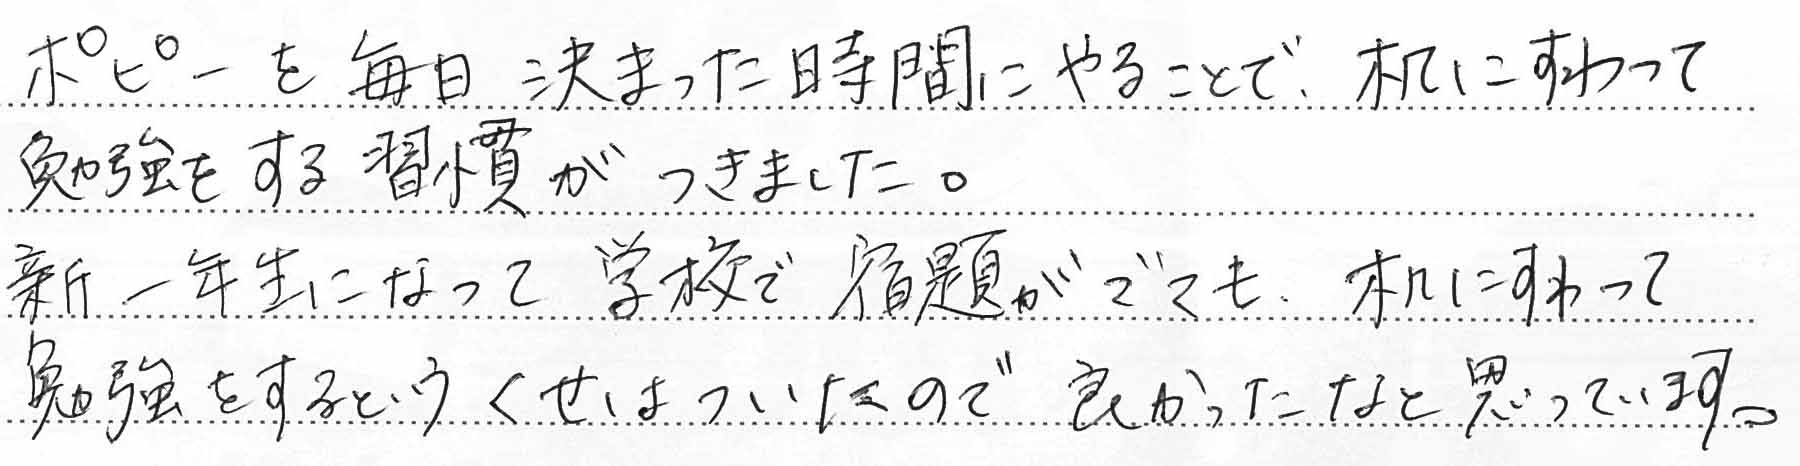 ポピーを毎日決まった時間にやることで、机にすわって
勉強をする習慣がつきました。
新一年生になって学校で宿題がでても、机にすわって
勉強をするというくせはついたので良かったなと思っています。